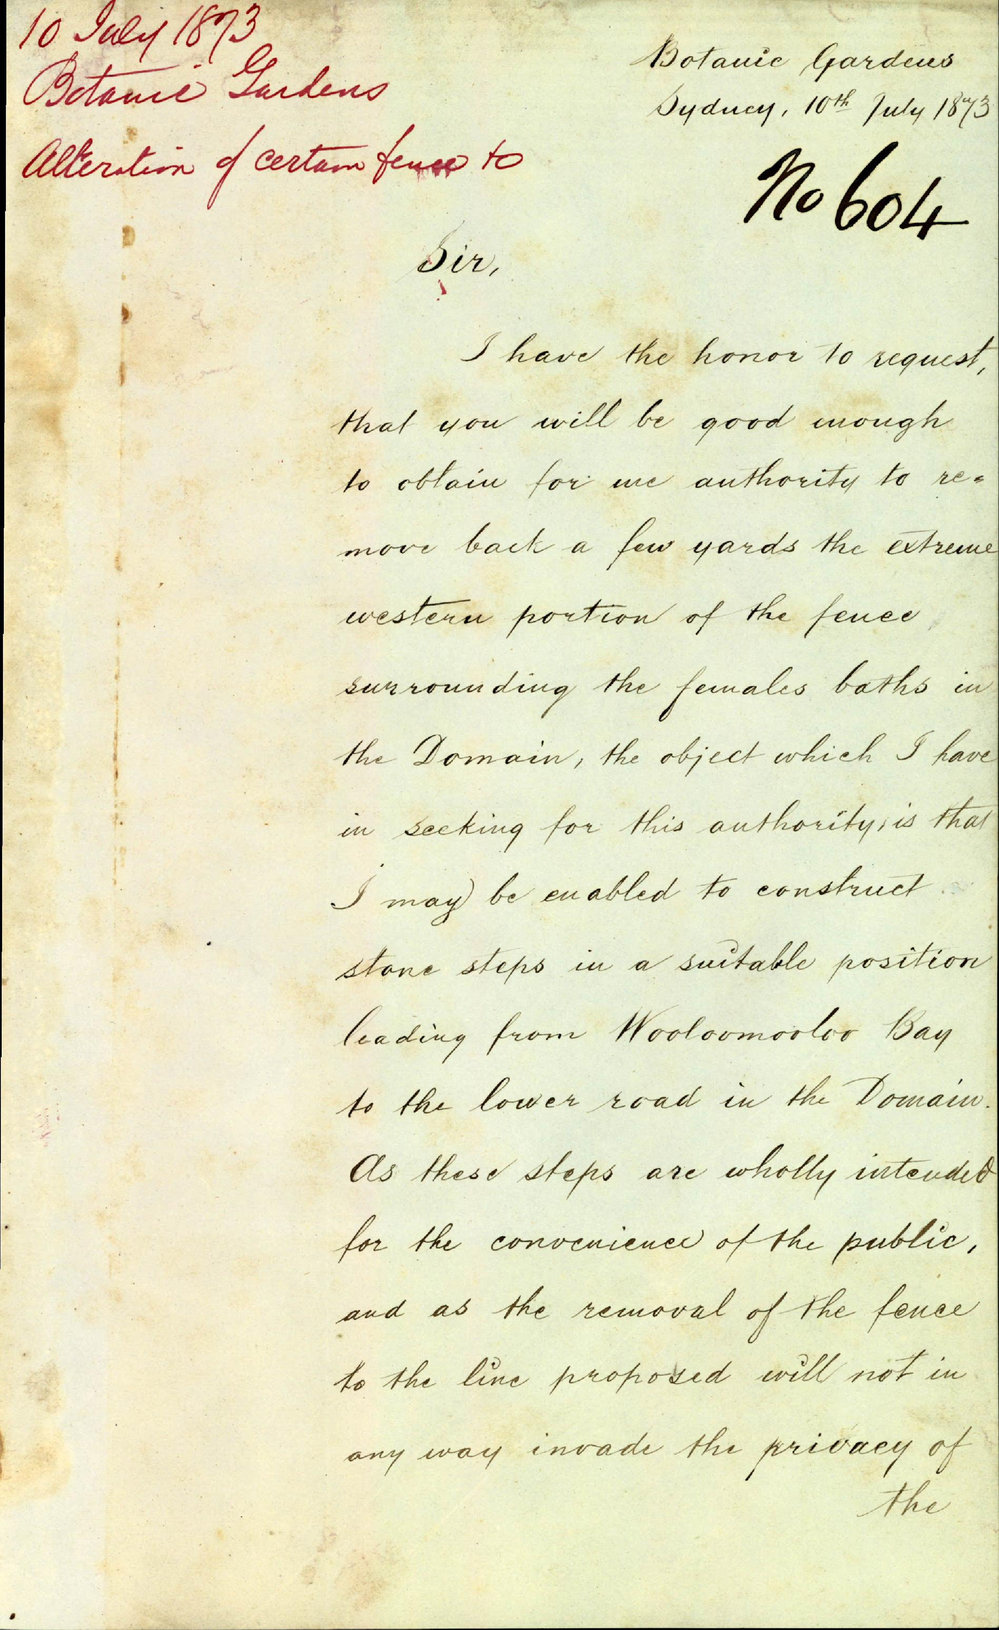 10 July 1873
Botanic Gardens
Alteration of certain fence to
Botanic Gardens
Sydney, 10th July 1873
No 604
Sir,
I have the honor to request,
that you will be good enough
to obtain for me authority to re=
move back a few yards the extreme
western portion of the fence
surrounding the females baths in
the Domain, the object which I have
in seeking for this authority, is that
I may be enabled to construct
stone steps in a suitable position
leading from Wooloomooloo Bay
to the lower road in the Domain.
As these steps are wholly intended
for the convenience of the public,
and as the removal of the fence
to the line proposed will not in
any way invade the privacy of
the